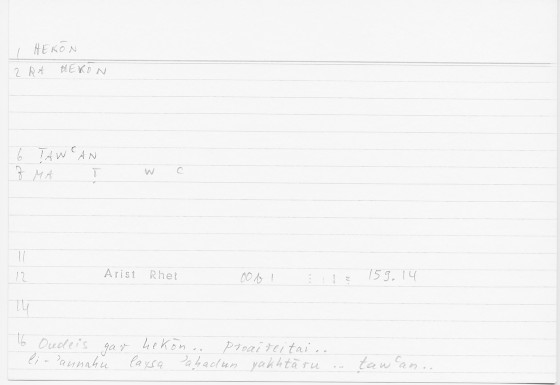 1 HEKŌN
2 HA HEKŌN
6 ṬAWʿAN
7 MA Ṭ W C
11
12 Arist Rhet 159.14
14
16 Oudeis gar hekōn.. proaireitai..
li-ʾannahu laysa ʾaḥadun yakhtāru .. ṭawʿan..